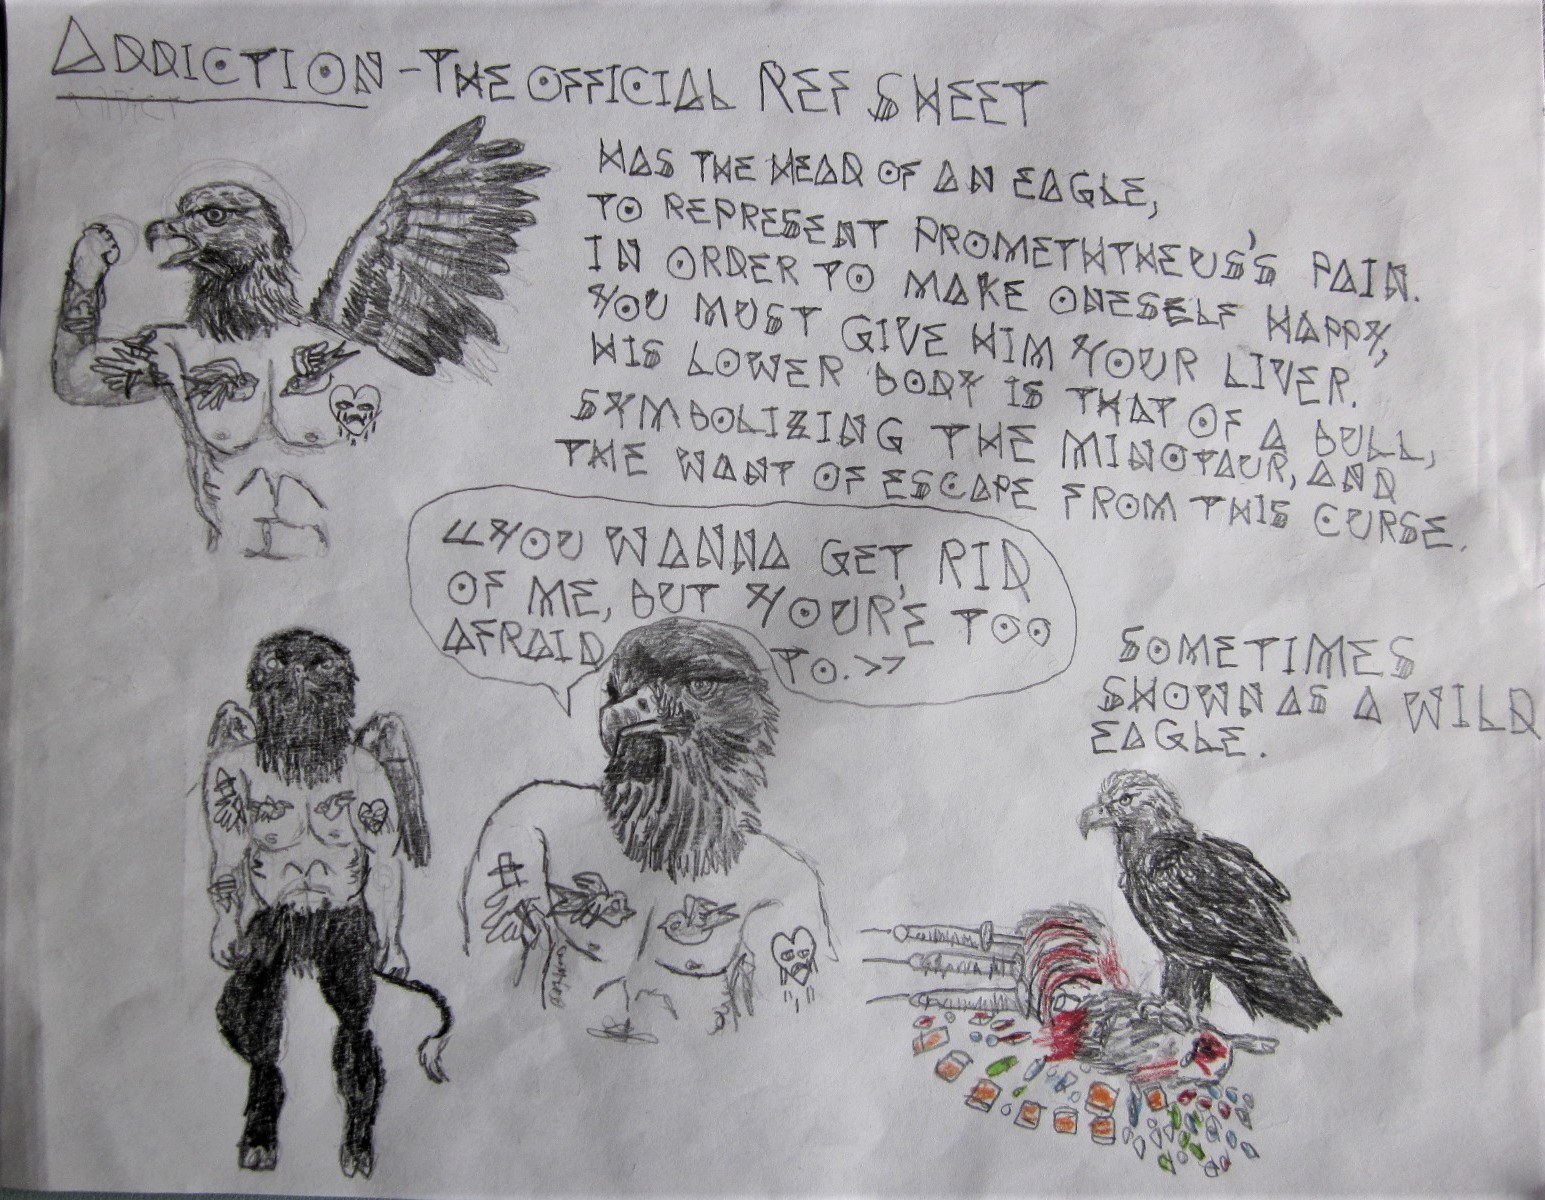 ADDICTION - THE OFFICIAL REF SHEET
HAS THE HEAD OF AN EAGLE,
TO REPRESENT PROMETHTHEUS'S PAIN.
IN ORDER TO MAKE ONESELF HAPPY,
YOU MUST GIVE HIM YOUR LIVER.
HIS LOWER BODY IS THAT OF A BULL,
SYMBOLIZING THE MINOTAUR, AND
THE WANT OF ESCAPE FROM THIS CURSE.
<<YOU WANNA GET RID
OF ME, BUT YOUR'E TOO
AFRAID TO.>>
SOMETIMES
SHOWN AS A WILD
EAGLE.